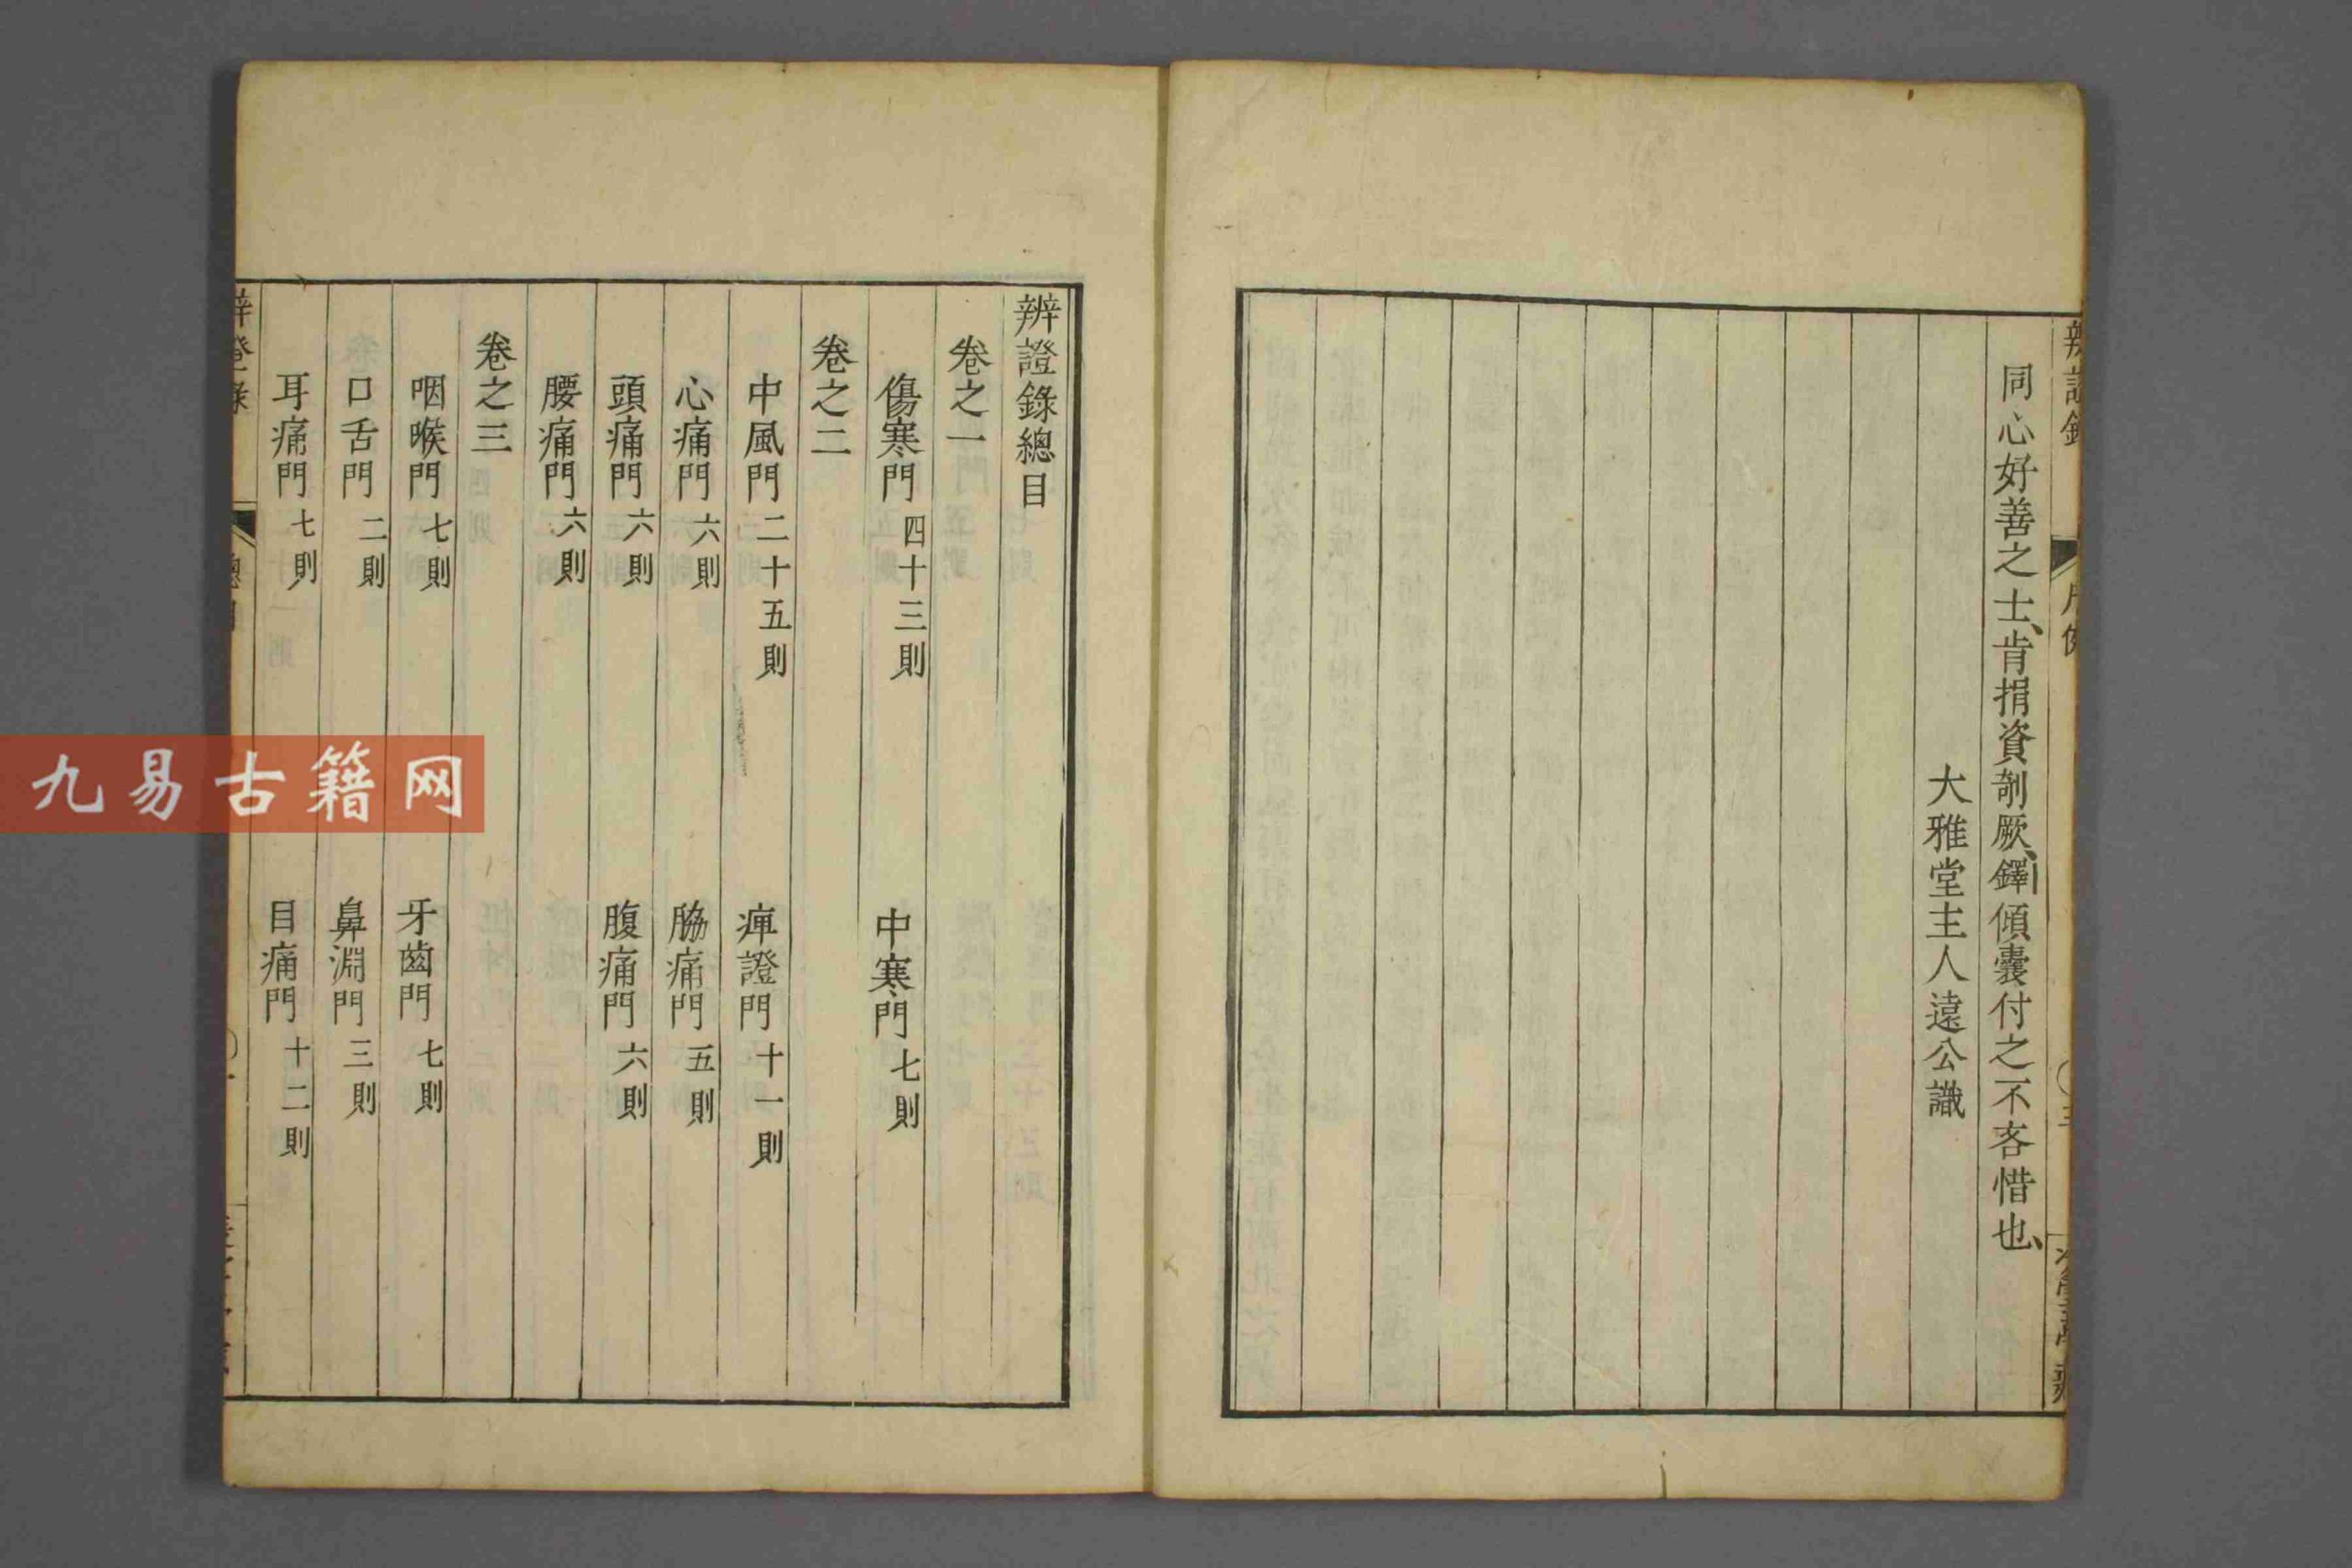 同心好善之士、肯捐資剞厥、鐸傾囊付之不吝惜也、
大雅堂主人遠公識
辨證錄總目
卷之一
傷寒門 四十三則 中寒門 七則
卷之二
中風門 二十五則 痺證門 十一則
心痛門 六則 脇痛門 五則
頭痛門 六則 腹痛門 六則
腰痛門 六則
卷之三
咽喉門 七則 牙齒門 七則
口舌門 二則 鼻淵門 三則
耳痛門 七則 目痛門 十二則
九易古籍网